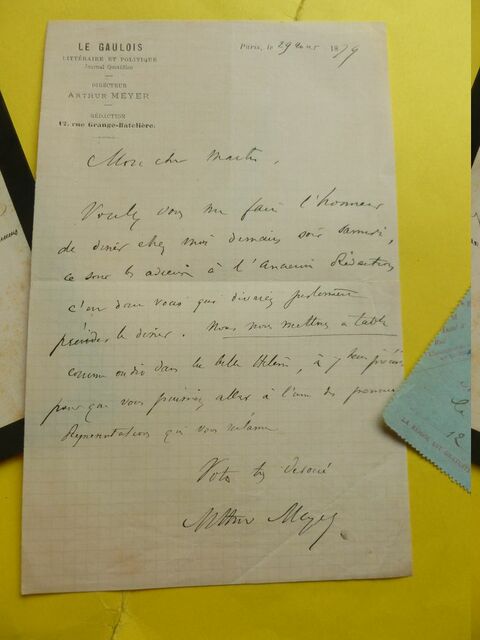 LE GAULOIS
LITTÉRAIRE ET POLITIQUE
Journal Quotidien
DIRECTEUR
ARTHUR MEYER
RÉDACTION
12, rue Grange-Batelière.
Paris, le 29 1879
Mon cher maître,
Voulez vous me faire l'honneur
de diner chez moi demain soir samedi,
ce sont les adieux à l'Ancienne Rédaction
c'est donc vous qui devriez justement
présider le diner. Nous nous mettons à table
comme on dit dans la belle Hélène, à 7 heures précises
pour que vous puissiez aller à l'une des premières
Représentations qui vous réclame
Votre très dévoué
Arthur Meyer
LA REMISE EST GRATUITE
12